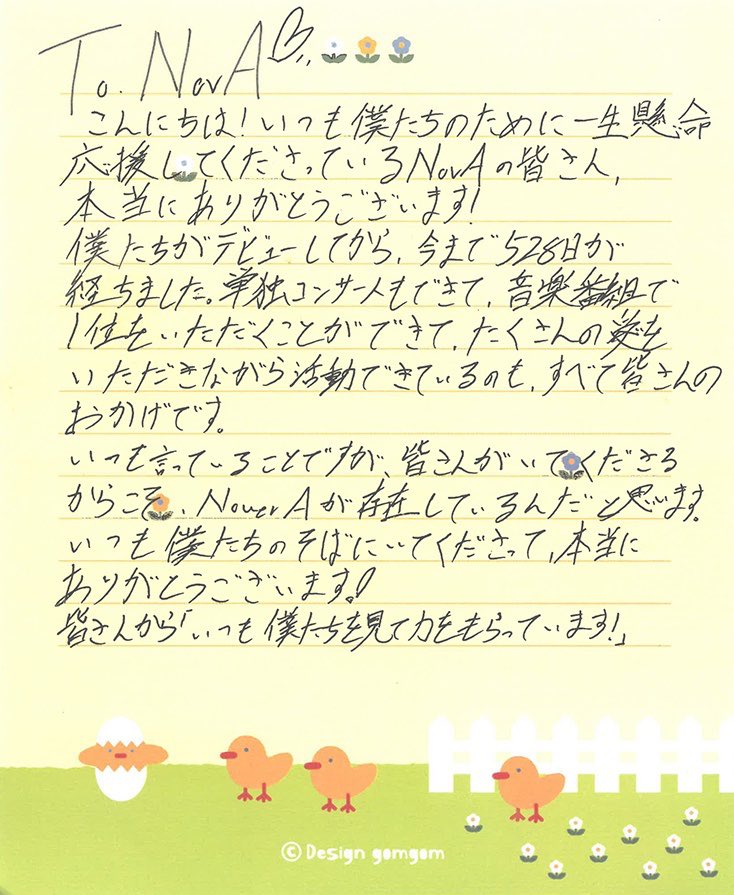 To. NovA
こんにちは！いつも僕たちのために一生懸命
応援してくださっているNovAの皆さん、
本当にありがとうございます！
僕たちがデビューしてから、今まで528日が
経ちました。単独コンサートもできて、音楽番組で
1位をいただくことができて、たくさんの愛を
いただきながら活動できているのも、すべて皆さんの
おかげです。
いつも言っていることですが、皆さんがいてくださる
からこそ、NouerAが存在しているんだと思います。
いつも僕たちのそばにいてくださって、本当に
ありがとうございます！
皆さんから「いつも僕たちを見て力をもらっています！」
© Design gomgom